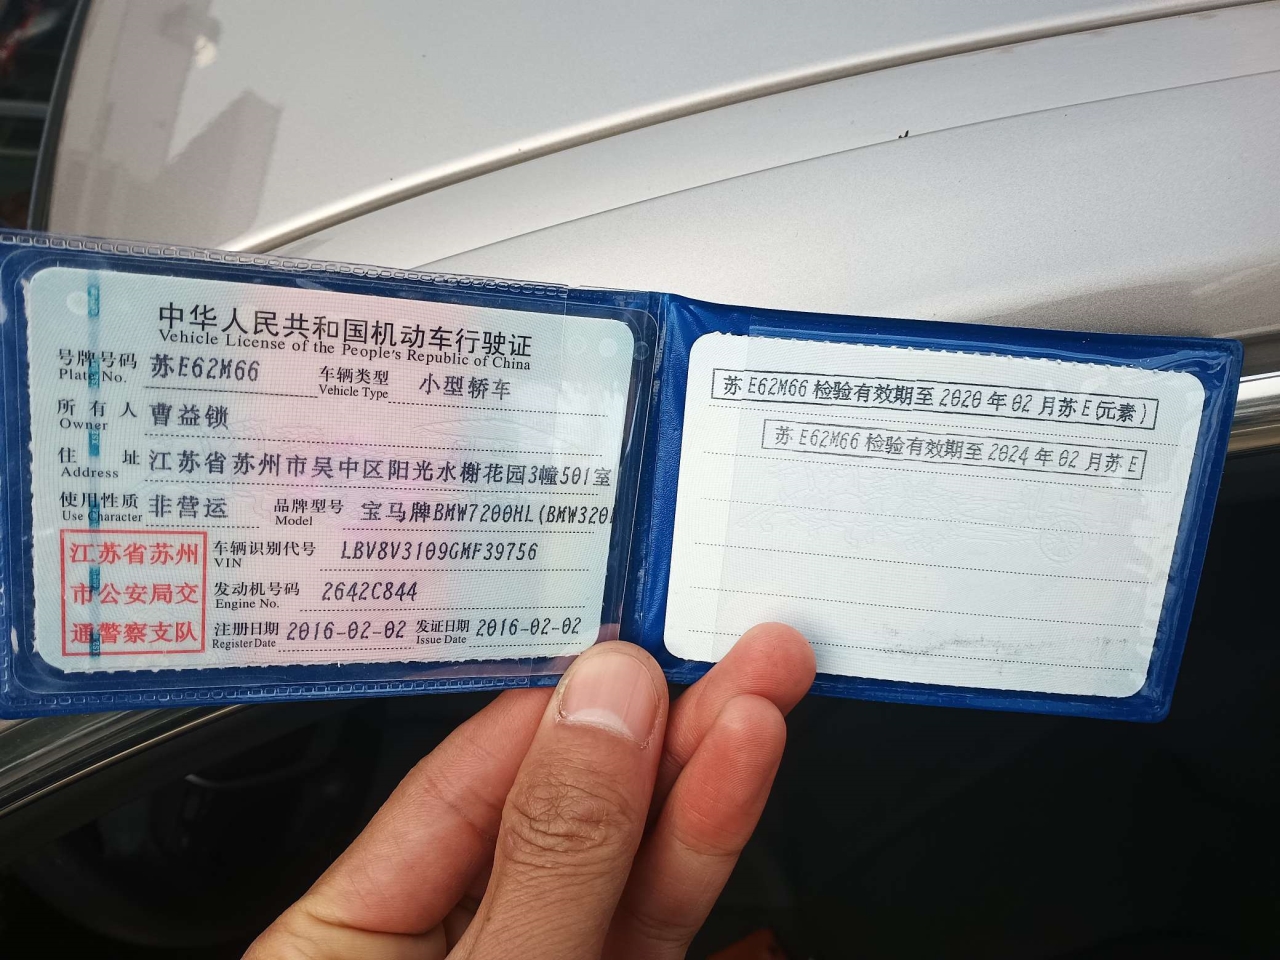 中华人民共和国机动车行驶证
Vehicle License of the People's Republic of China
号牌号码 苏E62M66 车辆类型 小型轿车
Plate No. Vehicle Type
所有人 曹益锁
Owner
住址 江苏省苏州市吴中区阳光水榭花园3幢501室
Address
使用性质 非营运 品牌型号 宝马牌BMW7200HL(BMW320
Use Character Model
江苏省苏州
市公安局交
通警察支队
车辆识别代号 LBV8V3109GMF39756
VIN
发动机号码 2642C844
Engine No.
注册日期 2016-02-02 发证日期 2016-02-02
Register Date Issue Date
苏E62M66检验有效期至2020年02月苏E(元素)
苏E62M66检验有效期至2024年02月苏E